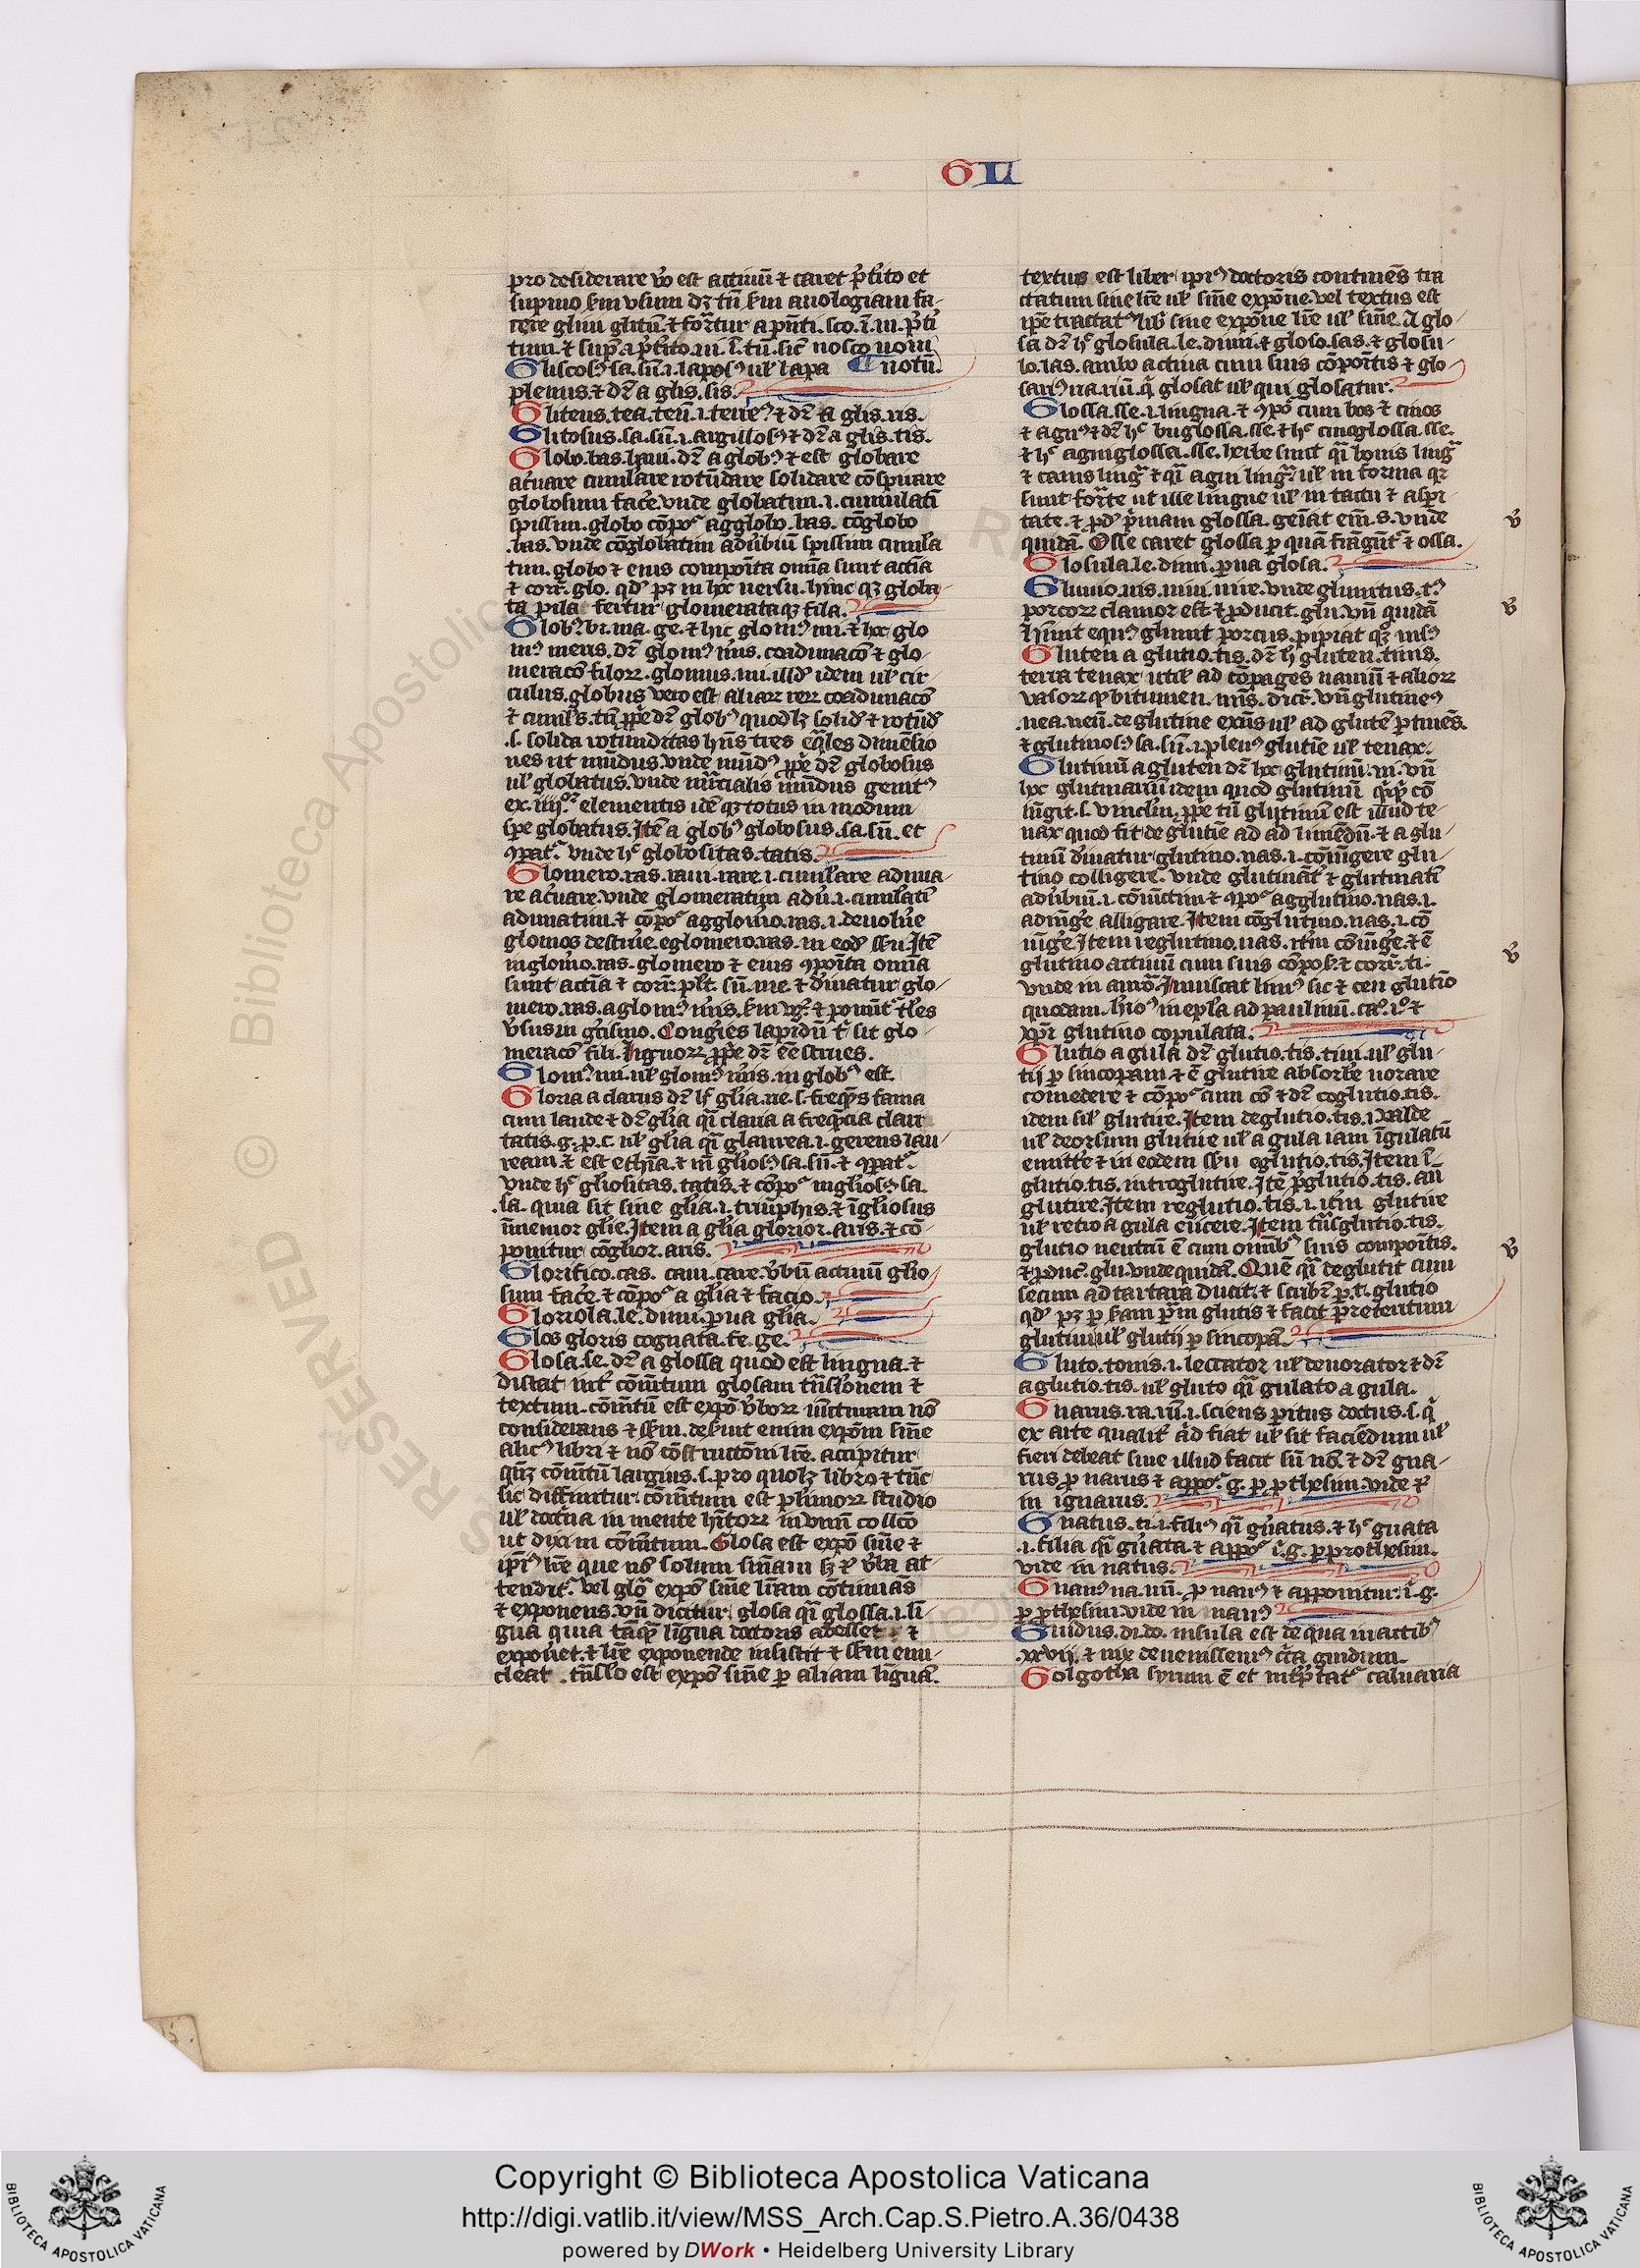 GL
pro desiderare vo est actiuū ⁊ caret p̄t̄ito et
supino s̄m vsum dꝫ tn̄ s̄m anologiam fa-
cere gliui glitū ⁊ format̃ a p̄nti
notū.
Gliscosꝰ sa. sū. i. laposꝰ ul̃ lapa
plenus. ⁊ dr̄ a glis. sis.
Gliteus. tea. teū. i. terreꝰ ⁊ dr̄ a glis. tis.
Glitosus. sa. sū. i. argillosꝰ ⁊ dr̄ a glis. tis.
Globo. bas. baui. dr̄ a globꝰ ⁊ est globare
ac̄uare cumulare rotūdare solidare cōspuare
globosum fac̄e. vnde globatim. i. cumulatī
spissim. globo cōpoᶜ agglobo. bas. cōglobo
.bas. vnde cōglobatim adūbiū spissim cumula
tim. globo ⁊ eius composita omīa sunt actīa
⁊ corr̃. glo. qd̓ pꝫ in hoc uersu. hinc qꝫ globa
ta pila fertur glomerataqꝫ fila.
Globꝰ bi. ma. ge. ⁊ hic glomꝰ mi. ⁊ hoc glo
mꝰ meris. dr̄ glomꝰ mīs. coadunacō ⁊ glo-
meracō filorꝝ. glomus. mi. illd̓ idem ul̃ cir
culus. globus vero est aliarꝝ rerꝝ coadunacō
⁊ cumlꝰs. tn̄ ꝓpe dr̄ globꝰ quodlꝫ solid̓ ⁊ rotūd̓
.s. solida rotunditas hn̄s tres eq̄les dimēsio
nes ut mūdus. vnde mūdꝰ ꝓpe dr̄ globosus
ul̃ globatus. vnde marcialis mūdus genitꝰ
ex. iiijᵒʳ elementis idē qꝫ totus in modum
spe globatus. Itē a globꝰ globosus. sa. sū. et
ꝯpatᶜ. vnde hᶜ globositas. tatis.
Glomero. ras. raui. rare. i. cumulare aduna
re ac̄uare. vnde glomeratim adū. i. cumulatī
adunatim. ⁊ cōpoᶜ agglomo. ras. i. deuolue
glomos destrue. eglomero. ras. in eod̓ s̄su. Itē
inglomo. ras. glomero ⁊ eius ꝯposita omīa
sunt actīa ⁊ corr̃. plt̄. sū. me. ⁊ diuatur glo-
mero. ras. a glomꝰ mīs. s̄m vg̃. ⁊ ponūt̃ tales
v̄sus in grecismo. Congies lapidū t̄ sit glo-
meracō fili. Lignorꝝ ꝓpe dr̄ eē strues.
Glomꝰ mi. ul̃ glomꝰ mīs. in globꝰ est.
Gloria a clarus dr̄ hᶜ glīa. ne. s. freq̄ns fama
cum laude ⁊ dr̄ glīa q̄i claria a freq̄ncia clari
tatis. g. p. c. ul̃ glīa q̄i glaurea. i. gerens lau-
ream. ⁊ est ethīa. ⁊ in̄ gliosꝰ sa. sū. ⁊ ꝯpatᶜ.
vnde hᶜ gliositas. tatis. ⁊ cōpoᶜ ingliosꝰ sa
.sa. quia sit sine glīa. i. triūphis. ⁊ īgliosus
īmemor glīe. Item a glīa glorior. aris. ⁊ cō-
ponitur cōglior. aris.
Glorifico. cas. caui. care. v̄bū actiuū glio
sum fac̄e. ⁊ cōpoᶜ a glīa ⁊ facio.
Gloriola. le. dimi. ꝑua glīa.
Glos gloris cognata. fe. ge.
Glosa. se. dr̄ a glossa quod est lingua. ⁊
distat int̄ cōmētum glosam tn̄slōnem ⁊
textum. cōmētū est expō v̄borꝝ iūcturam nō
considerans ⁊ s̄sm. deseruit enim expōni sn̄ie
alicꝰ libri ⁊ nō cōstructōni lr̄e. accipitur
q̄nꝫ cōmētū largius. s. pro quolꝫ libro ⁊ tūc
sic diffinitur. cōmētum est plurimorꝝ studio
ul̃ doctrīa in mente hītorꝝ in vnū collcō
ut dixi in cōmētum. Glosa est expō sn̄ie ⁊
ip̄iꝰ lr̄e que nō solum sn̄iam sꝫ ⁊ v̄ba at
tenditᶜ. vel glō expō sn̄ie lr̄am cōtinuās
⁊ exponens. vn̄ dicitur glosa q̄i glossa. i. lī
gua quia tāꝙ lingua doctoris adesset ⁊
exponet. ⁊ lr̄e exponende insistit ⁊ s̄sm enu-
cleat. tn̄slo est expō sn̄ie ꝑ aliam linguā.
textus est liber ip̄iꝰ doctoris continēs tra
ctatum siue lr̄e ul̃ sn̄ie expōne. vel textus est
ip̄e tractatꝰ lib̓ sine expōne lr̄e ul̃ sn̄ie. A glo-
sa dr̄ hᶜ glosula. le. dimi. ⁊ gloso. sas. ⁊ glosu-
lo. las. ambo actiua cum suis cōpoītis ⁊ glo
sariꝰ na. riū. q̄ glosat ul̃ qui glosatur.
Glossa. sse. i. lingua. ⁊ ꝯpoᶜ cum bos ⁊ cinos
⁊ agnꝰ ⁊ dr̄ hᶜ buglossa. sse. ⁊ hᶜ cinoglossa. sse.
⁊ hᶜ agniglossa. sse. herbe sunt q̄i bouis ling̃
⁊ canis ling̃ ⁊ q̄i agni ling̃. ul̃ in forma qꝛ
sunt formate ut ille lingue ul̃ in tactu ⁊ aspi-
tate. ⁊ ꝓd̓ p̄mam glossa. geīat em̄. s. vnde
quidā. Osse caret glossa ꝑ quā frāgūt̃ ⁊ ossa.
Glosula. le. dimi. ꝑua glosa.
Glunio. nis. niui. nire. vnde glunitus. tꝰ
porcorꝝ clamor est. ⁊ ꝓducit. glu. vn̄ quidā
Hinnit equꝰ glunit porcus. pipiat qꝫ miluꝰ
Gluten a glutio. tis. dr̄ hᶜ gluten. tinis.
terra tenax utilis ad cōpages nauiū ⁊ aliorꝝ
vasorꝝ bitumen. mīs. dicit̃. vn̄ glutineꝰ
.nea. neū. de glutine exn̄s ul̃ ad glutē ꝑtinēs.
⁊ glutinosꝰ sa. sū. i. plenꝰ glutīe ul̃ tenax.
Glutinū a gluten dr̄ hoc glutinū. ni. vn̄
hoc glutinariū idem quod glutinū
iūgit. s. vinclm̄. ꝓpe tn̄ glutinū est illud te-
nax quod fit de glutīe ad ad iuuēdū. ⁊ a glu-
tinū diuatur glutino. nas. i. cōiūgere glu-
tino colligere. vnde glutināt̃ ⁊ glutinatī
adūbiū. i. cōiūctim ⁊ ꝯpoᶜ agglutino. nas. i.
adiūge alligare. Item cōglutino. nas. i. cō
iūge. Item reglutino. nas. it̄m cōiūge. ⁊ ē
glutino actiuū cum suis cōpoīs. ⁊ corr̃. ti.
vnde in auror̃. Inuiscat limꝰ sic ⁊ ceu glutīo
quodam. Hieroꝰ in ep̄la ad paulinū. caº. iº. ⁊
xp̄i glutino copulata.
Glutio a gula dr̄ glutio. tis. tiui. ul̃ glu-
tij ꝑ sincopam. ⁊ ē glutire absorbe uorare
comedere ⁊ cōpoᶜ cum cō ⁊ dr̄ coglutio. tis.
idem sil̃ glutire. Item deglutio. tis. i. valde
ul̃ deorsum glutire ul̃ a gula iam īgulatū
emitte ⁊ in eodem s̄su eglutio. tis. Item ī
glutio. tis. introglutire. Itē p̄glutio. tis. an̄
glutire. Item reglutio. tis. i. it̄m glutire
ul̃ retro a gula eiicere. Item tn̄sglutio. tis.
glutio neutrū ē cum omībꝰ suis compoītis.
⁊ ꝓduc̄. glu. vnde quidā. Quē q̄i deglutit cum
secum ad tartara ducit. ⁊ scribit̃ ꝑ. t. glutio
qd̓ pꝫ ꝑ s̄cam p̄m glutis ⁊ facit p̄teritum
glutiui ul̃ glutij ꝑ sincopā.
Gluto. tonis. i. leccator ul̃ deuorator ⁊ dr̄
a glutio. tis. ul̃ gluto q̄i gulato a gula.
Gnarus. ra. rū. i. sciens ꝑitus doctus. s. q̄
ex arte qualit̃ q̄d fiat ul̃ sit faciēdum ul̃
fieri debeat siue illud facit siū nō. ⁊ dr̄ gna-
rus ꝓ narus ⁊ appoᶜ. g. ꝑ ꝓthesim. vide ⁊
in ignarus.
Gnatus. ti. i. filiꝰ q̄i g̃natus. ⁊ hᶜ gnata
.i. filia q̄i g̃nata. ⁊ appoᶜ ī. g. ꝑ prothesim.
vide in natus.
Gnauꝰ na. uū. ꝓ nauꝰ ⁊ apponitur. ī. g.
ꝑ ꝓthesim. vide in nauꝰ
Gnidus. di. do. insula est de qua in actibꝰ
.xxvij. ⁊ uix deuenissemꝰ c̄tra gnidum.
Golgotha syrum ē et int̄ꝑtatᶜ caluaria
v̓
v̓
v̓
v̓
RESERVED © Biblioteca Apostolica
Copyright © Biblioteca Apostolica Vaticana
http://digi.vatlib.it/view/MSS_Arch.Cap.S.Pietro.A.36/0438
powered by DWork • Heidelberg University Library
BIBLIOTECA APOSTOLICA VATICANA
BIBLIOTECA APOSTOLICA VATICANA